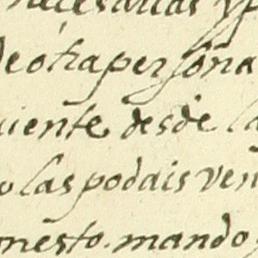 necesarias y p
de otra persona
uiente, desde la
o las podais ven
nesto. mando